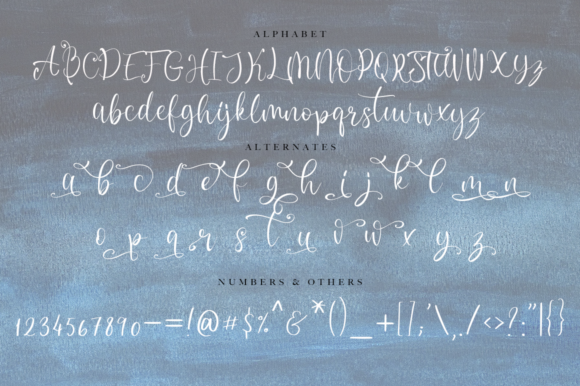 ALPHABET
ABCDEFGHIJKLMNOPQRSTUVWXYZ
abcdefghijklmnopqrstuvwxyz
ALTERNATES
a b c d e f g h i j k l m n
o p q r s t u v w x y z
NUMBERS & OTHERS
1234567890-=!@#$%^&*()_+[];'\,./<>?:"|{}